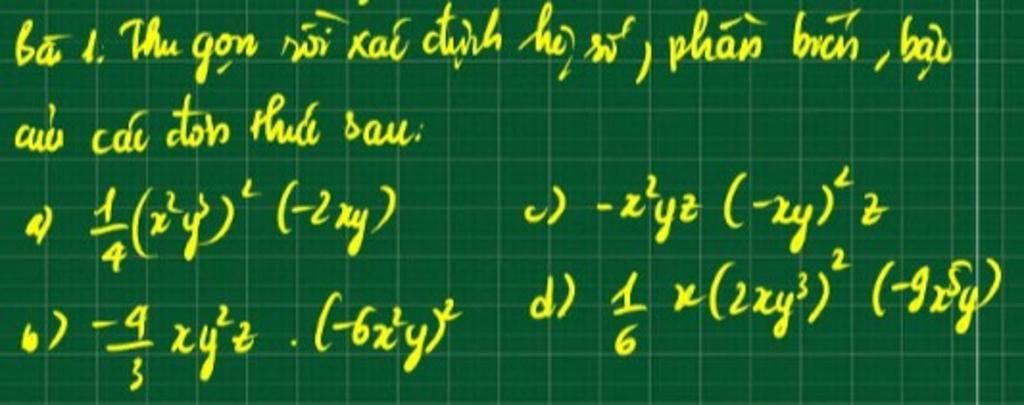 Bài 1. Thu gọn rồi xác định hệ số, phần biến, bậc
của các đơn thức sau:
a) 1/4 (x²y³)² (-2xy)
c) -x²yz (-xy)² z
b) -4/3 xy²z . (-6x²y)²
d) 1/6 x(2xy³)² (-9x⁵y)